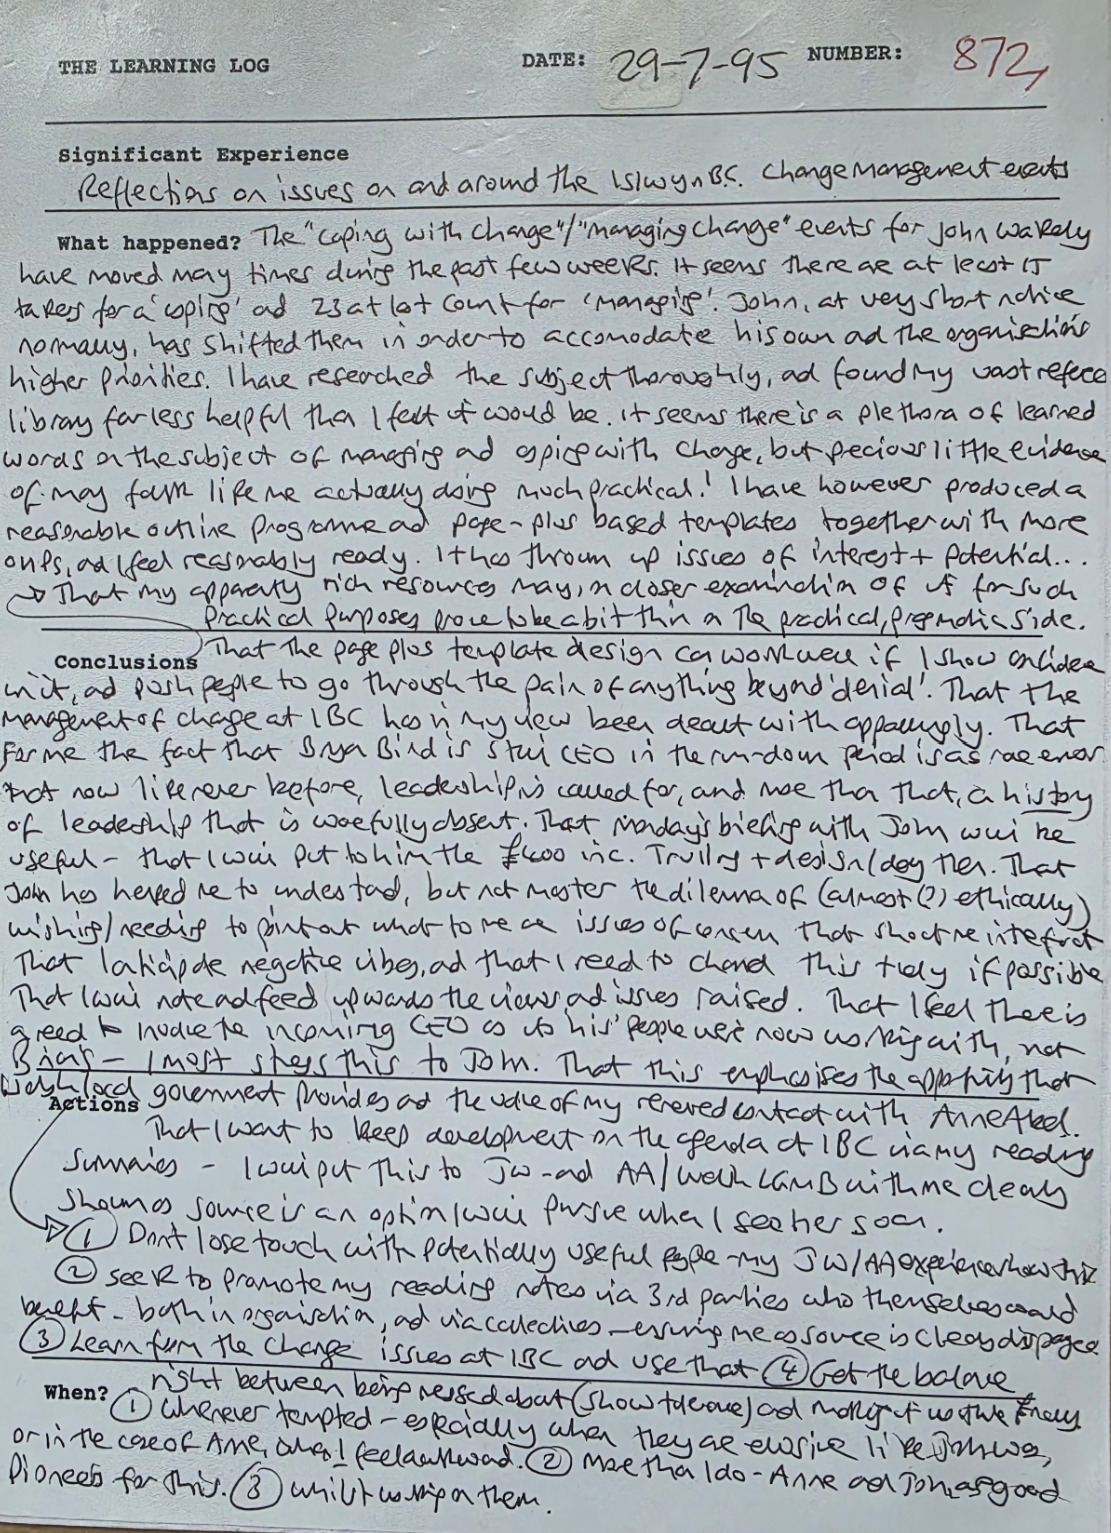 THE LEARNING LOG DATE: 29-7-95 NUMBER: 872
Significant Experience
Reflections on issues on and around the Islwyn B.C. Change Management events
What happened? The "coping with change"/"managing change" events for John Wakely
have moved many times during the past few weeks. It seems there are at least 15
takers for a 'coping' ad 23 at last count for 'managing'. John, at very short notice
normally, has shifted them in order to accomodate his own ad the organisation's
higher priorities. I have researched the subject thoroughly, ad found my vast
library far less helpful than I felt it would be. It seems there is a plethora of learned
words on the subject of managing ad coping with change, but precious little evidence
of many folk like me actually doing much practical! I have however produced a
reasonable outline programme ad page-plus based templates together with more
ad I feel reasonably ready. It has thrown up issues of interest + potential...
That my apparently rich resources may, on closer examination of it for such
practical purposes prove to be a bit thin on the practical, pragmatic side.
Conclusions That the page plus template design can work well if I show confidence
in it, ad push people to go through the pain of anything beyond 'denial'. That the
management of change at IBC has in my view been dealt with appallingly. That
for me the fact that Bryan Bird is still CEO in the run-down period is as
that now like never before, leadership is called for, and more than that, a history
of leadership that is woefully absent. That Monday's briefing with John will be
useful - that I will put to him the £400 inc. + design/day then. That
John has helped me to understand, but not master the dilemma of (almost(?) ethically)
wishing/needing to point out what to me are issues of concern that
That I anticipate negative vibes, ad that I need to channel this if possible
That I will note ad feed upwards the views ad issues raised. That I feel there is
a need to involve the incoming CEO as it's 'his' people we're now working with, not
Brian's - I must stress this to John. That this emphasises the opportunity that
Welsh local
Actions government provides ad the value of my renewed contact with Anne Abel.
That I want to keep development on the agenda at IBC via my reading
summaries - I will put this to JW - ad AA/Welsh LGMB with me clearly
shown as source is an option I will pursue when I see her soon.
① Don't lose touch with potentially useful people - my JW/AA experience show this
② Seek to promote my reading notes via 3rd parties who themselves could
benefit - both in organisation, ad via collectives - ensuring me as source is clearly displayed
③ Learn from the change issues at IBC ad use that ④ Get the balance
When? right between being messed about (show tolerance) ad
① Whenever tempted - especially when they are elusive like John was,
or in the case of Anne, when I feel awkward. ② More than I do - Anne ad John as good
pioneers for this. ③ Whilst working on them.